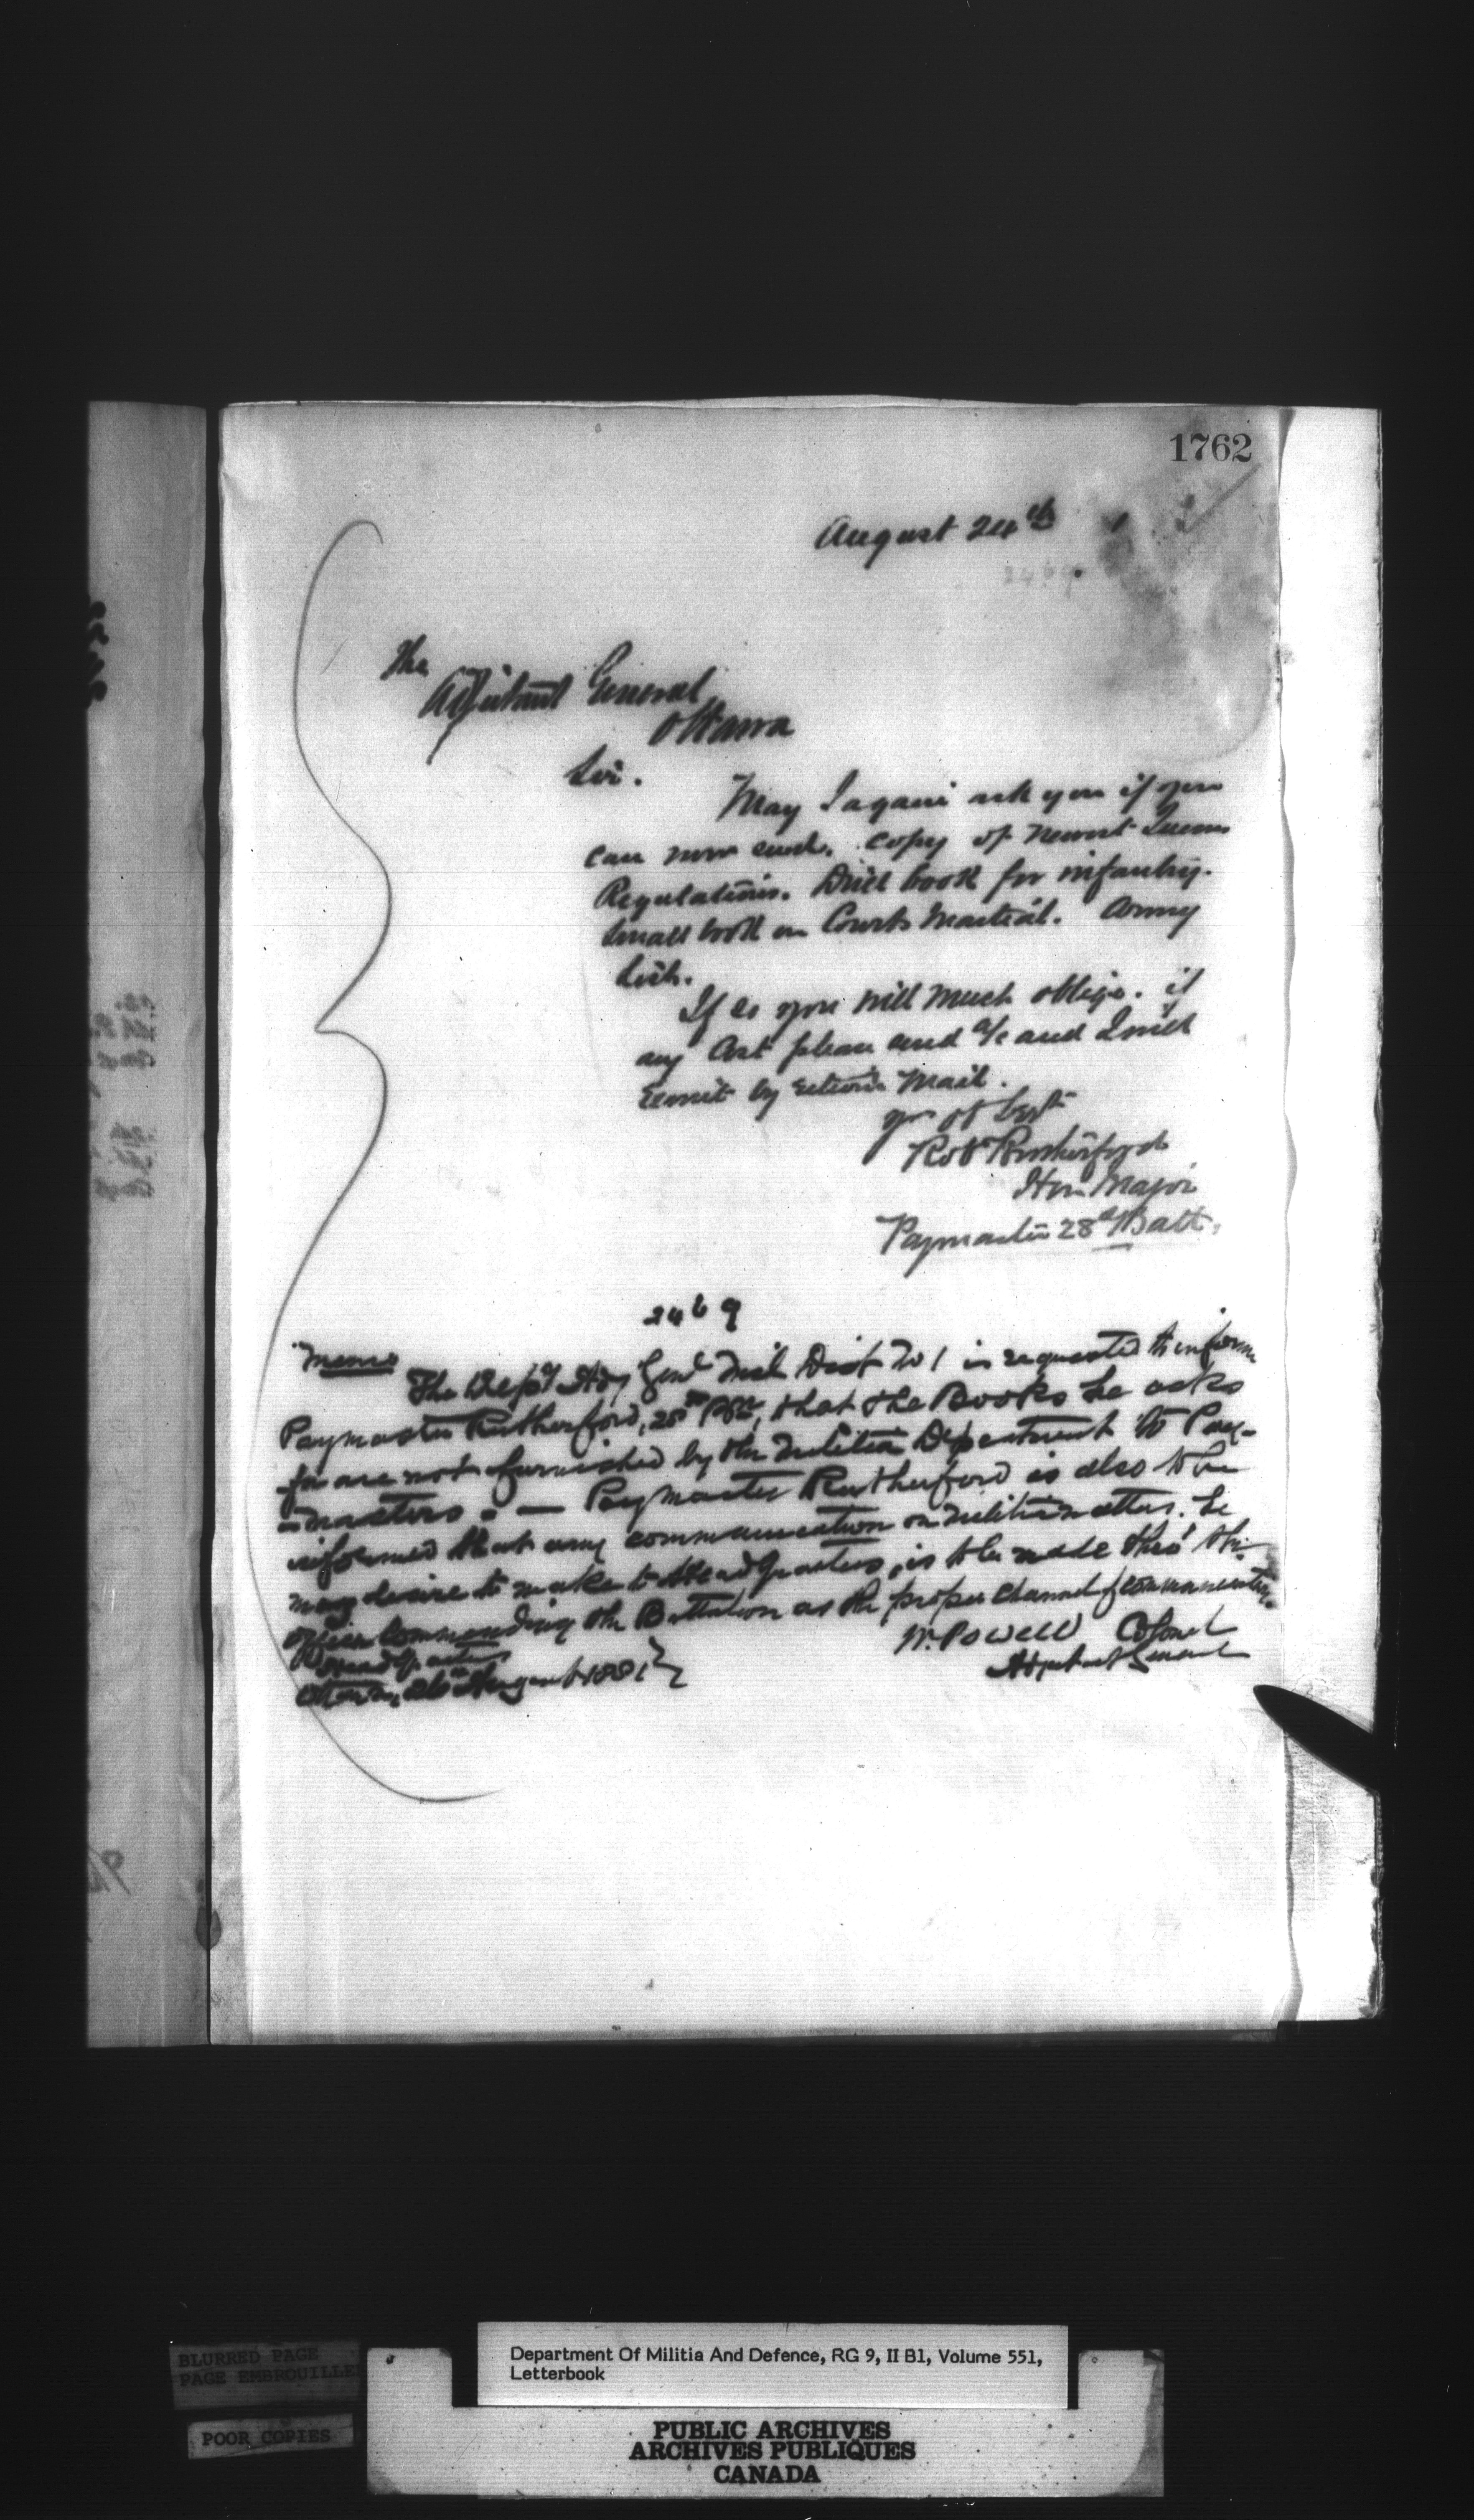 1762
August 24th
2469.
The
Adjutant General
Ottawa
Sir.
May I again ask you if you
can now send. copy of newest Queens
Regulations. Drill book for infantry.
Small book on Courts Martial. Army
List.
If so you will much oblige. if
any Cost please send a/c and I will
remit by return Mail.
yr ob Svt
Robt Rutherford
Hon Major
Paymaster 28th Batt.
2469
Memo
The Depy Adj Genl Mil Dist No 1 is requested to inform
Paymaster Rutherford, 28th Bn, that the Books he asks
for are not furnished by the Militia Department to Pay-
-masters. — Paymaster Rutherford is also to be
informed that any communication on militia matters he
may desire to make to Head Quarters, is to be made thro' the
officer Commanding the Battalion as the proper channel of communication.
W. Powell Colonel
Adjutant General
Head Quarters
Ottawa, 26th August 1881
BLURRED PAGE
PAGE EMBROUILLE
POOR COPIES
Department Of Militia And Defence, RG 9, II B1, Volume 551,
Letterbook
PUBLIC ARCHIVES
ARCHIVES PUBLIQUES
CANADA